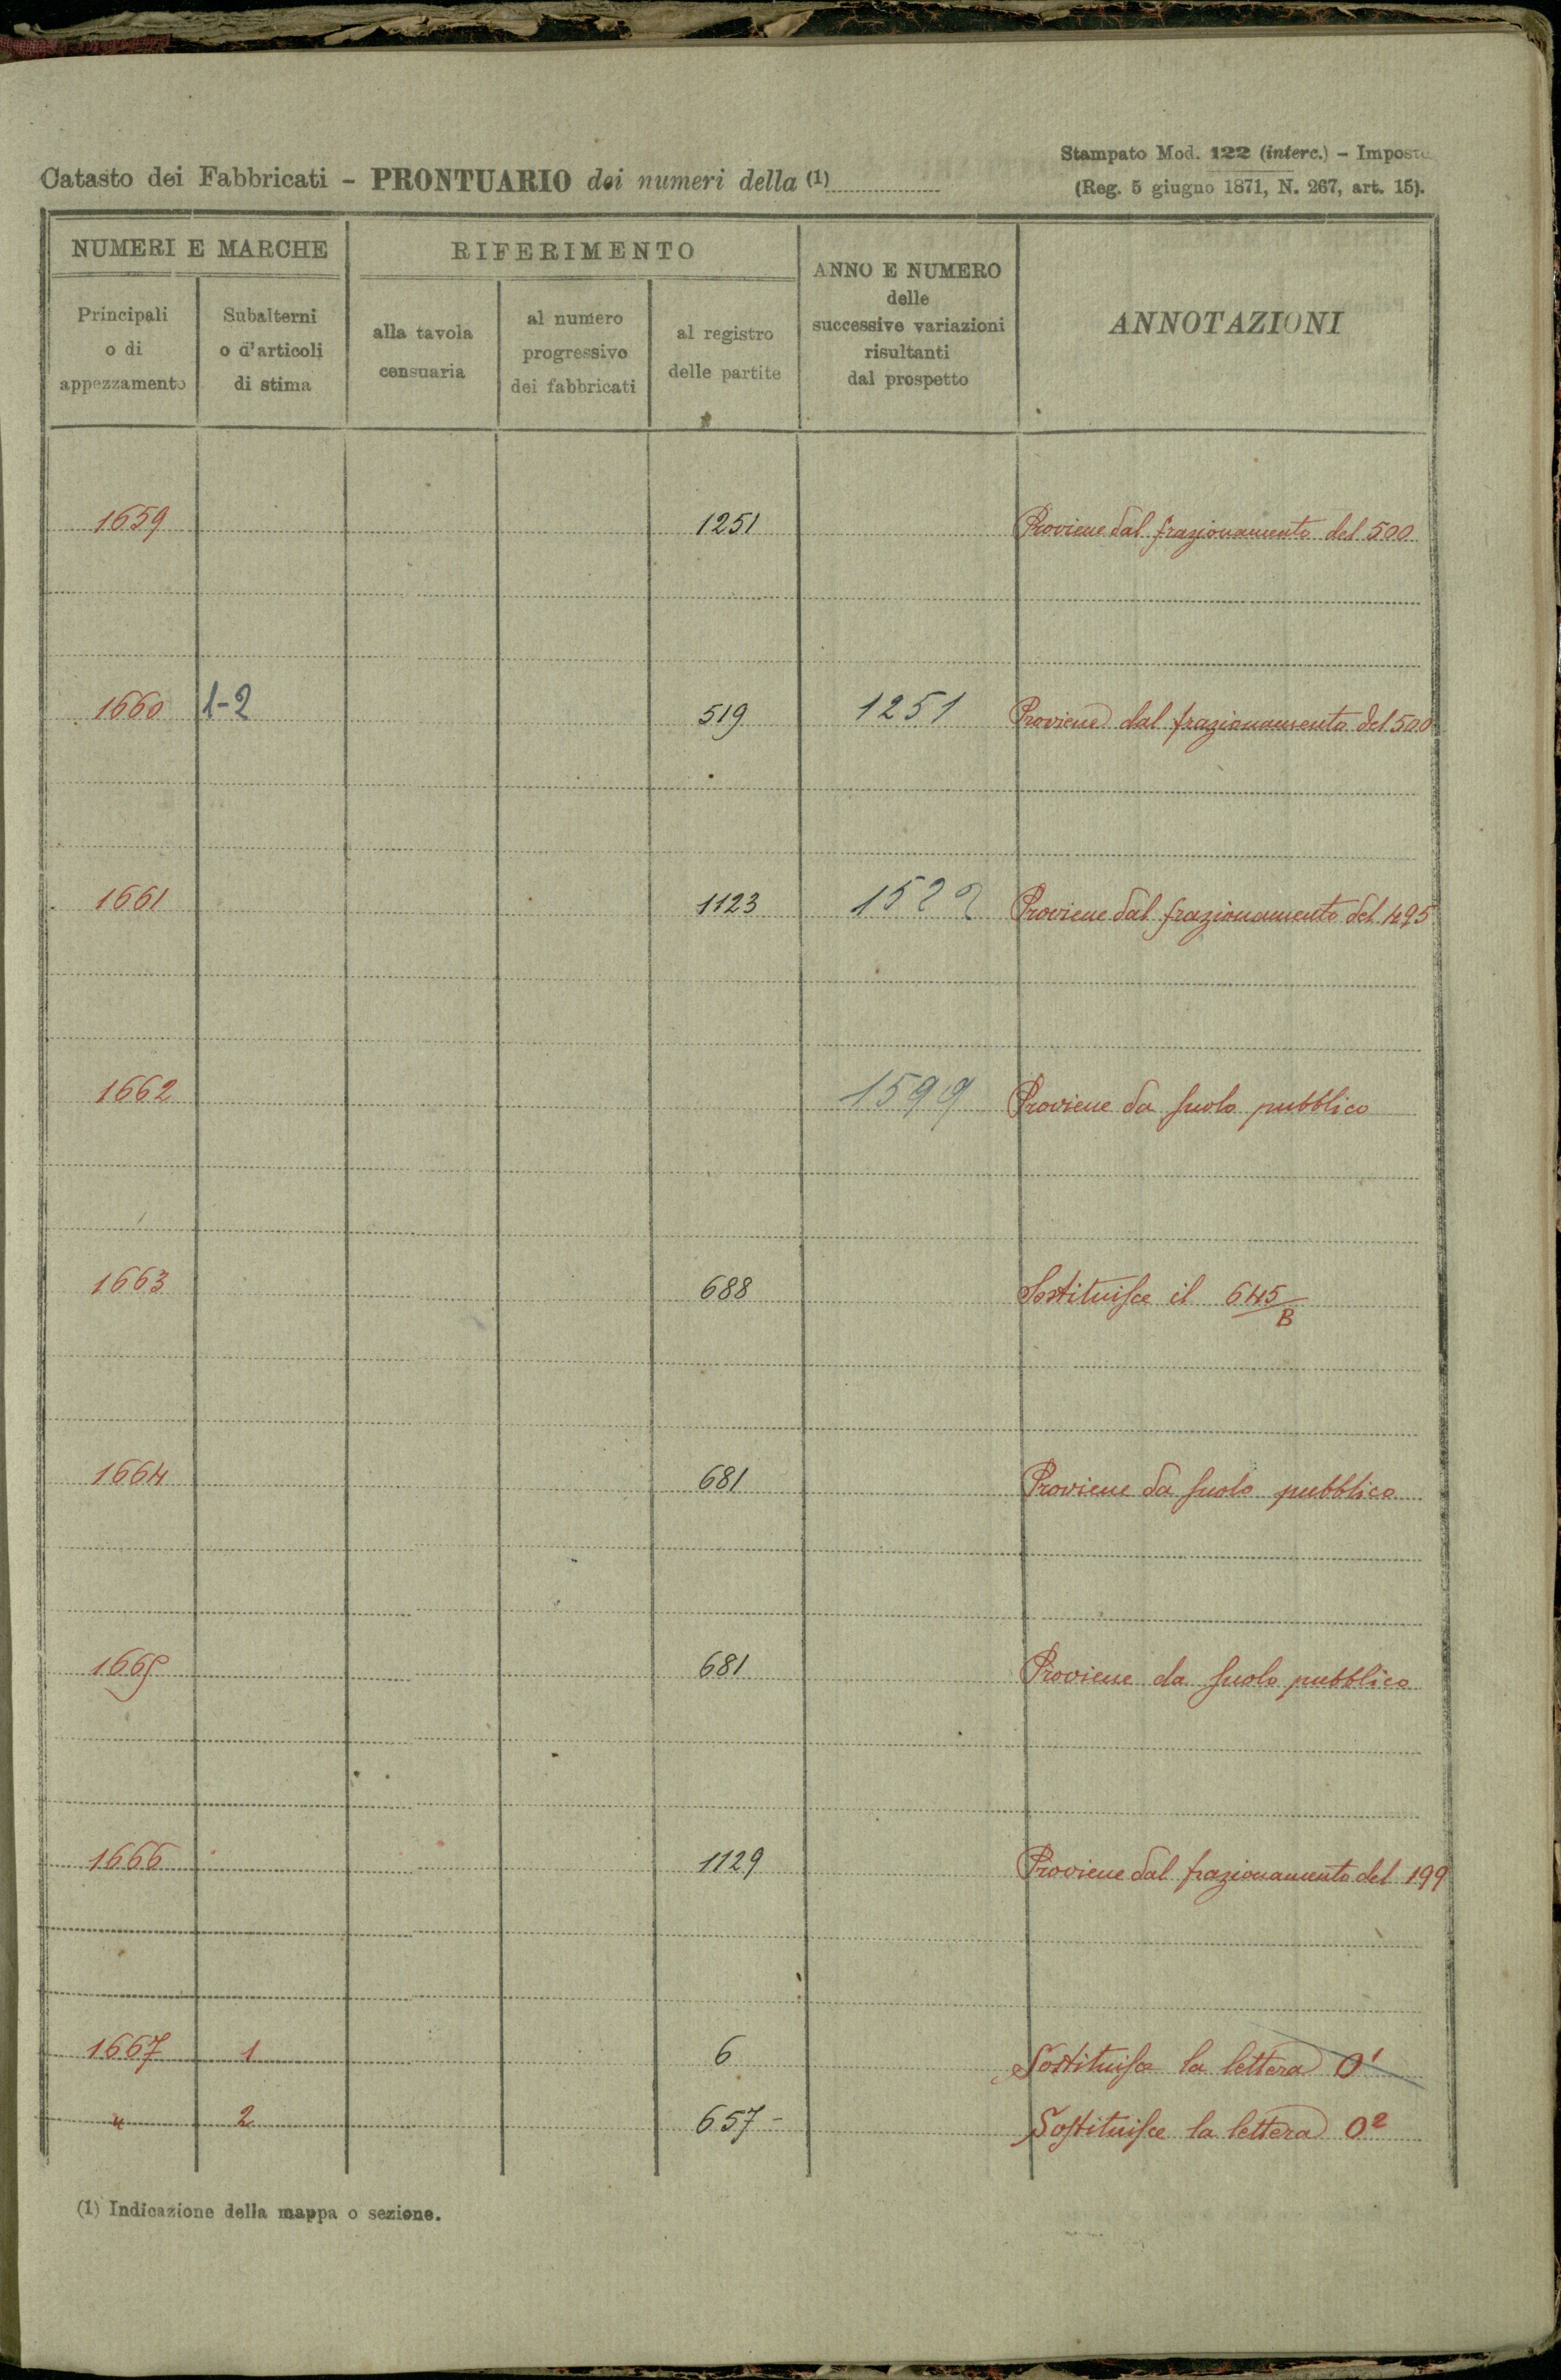 Stampato Mod. 122 (interc.) – Imposte
Catasto dei Fabbricati – PRONTUARIO dei numeri della (1)
(Reg. 5 giugno 1871, N. 267, art. 15).
NUMERI E MARCHE
RIFERIMENTO
ANNO E NUMERO
delle
successive variazioni
risultanti
dal prospetto
ANNOTAZIONI
Principali
o di
appezzamento
Subalterni
o d'articoli
di stima
alla tavola
censuaria
al numero
progressivo
dei fabbricati
al registro
delle partite
1659 1251 Proviene dal frazionamento del 500
1660 1-2 519 1251 Proviene dal frazionamento del 500
1661 1123 1522 Proviene dal frazionamento del 495
1662 1599 Proviene da suolo pubblico
1663 688 Sostituisce il 645/B
1664 681 Proviene da suolo pubblico
1665 681 Proviene da suolo pubblico
1666 1129 Proviene dal frazionamento del 199
1667 1 6 Sostituisce la lettera O¹
" 2 657- Sostituisce la lettera O²
(1) Indicazione della mappa o sezione.